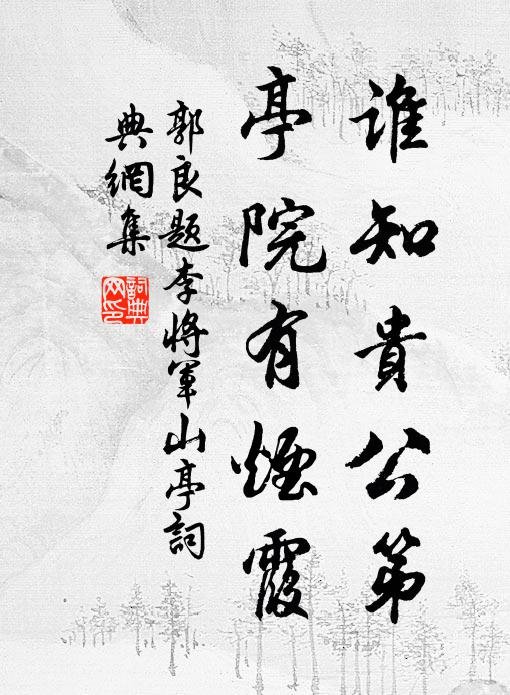 誰知貴公第
亭院有煙霞
郭良題李將軍山亭詞
典網集
詞典網印